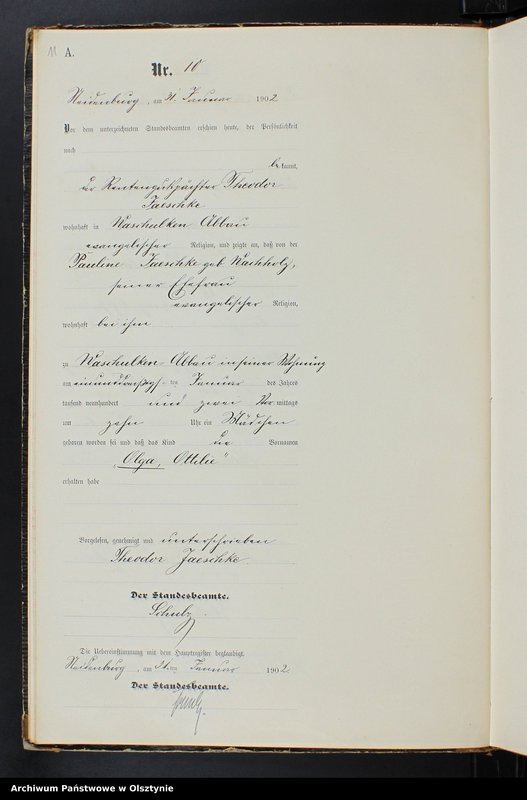 11 A.
Nr. 10
Neidenburg, am 31. Januar 1902
Vor dem unterzeichneten Standesbeamten erschien heute, der Persönlichkeit
nach
be kannt,
der Rentengutspächter Theodor
Jaeschke
wohnhaft in Waschulken Abbau
evangelischer Religion, und zeigte an, daß von der
Pauline Jaeschke geb. Wachholz,
seiner Ehefrau
evangelischer Religion,
wohnhaft bei ihm
zu Waschulken-Abbau in seiner Wohnung
am einunddreißigs-ten Januar des Jahres
tausend neunhundert und zwei Vor mittags
um zehn Uhr ein Mädchen
geboren worden sei und daß das Kind die Vornamen
„Olga, Ottilie"
erhalten habe
Vorgelesen, genehmigt und unterschrieben
Theodor Jaeschke.
Der Standesbeamte.
Schulz.
Die Uebereinstimmung mit dem Hauptregister beglaubigt.
Neidenburg, am 31.ten Januar 1902.
Der Standesbeamte.
Schulz.
Archiwum Państwowe w Olsztynie